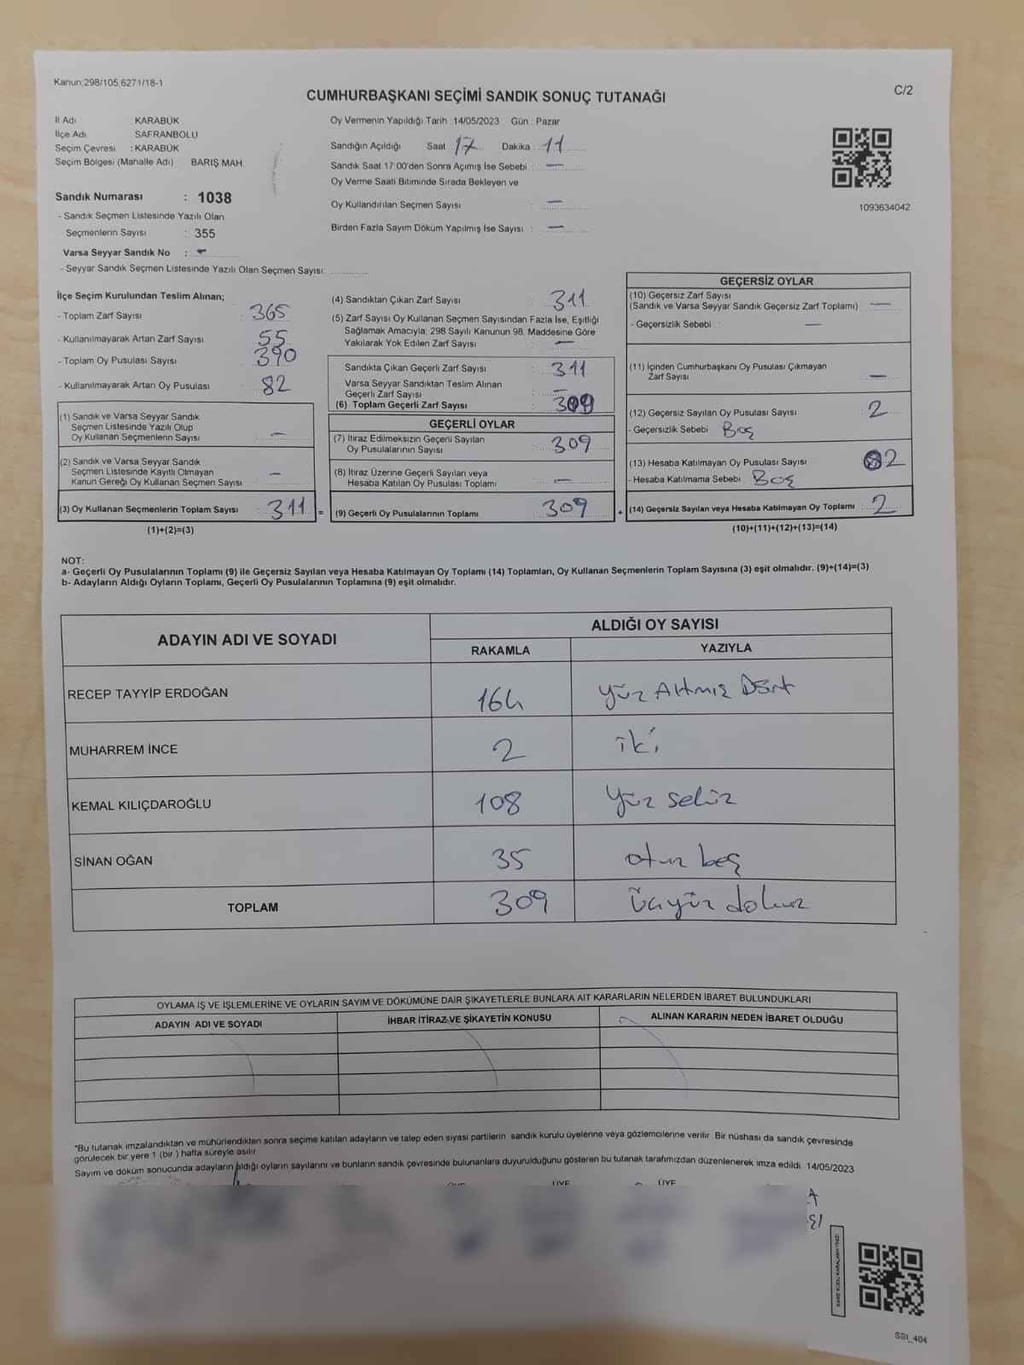 Kanun:298/105,6271/18-1
C/2
CUMHURBAŞKANI SEÇİMİ SANDIK SONUÇ TUTANAĞI
İl Adı KARABÜK
İlçe Adı SAFRANBOLU
Seçim Çevresi : KARABÜK
Seçim Bölgesi (Mahalle Adı) BARIŞ MAH.
Sandık Numarası : 1038
- Sandık Seçmen Listesinde Yazılı Olan
Seçmenlerin Sayısı : 355
Varsa Seyyar Sandık No : -
- Seyyar Sandık Seçmen Listesinde Yazılı Olan Seçmen Sayısı:
Oy Vermenin Yapıldığı Tarih : 14/05/2023 Gün : Pazar
Sandığın Açıldığı Saat 17 Dakika 11
Sandık Saat 17:00'den Sonra Açımış İse Sebebi : —
Oy Verme Saati Bitiminde Sırada Bekleyen ve
Oy Kullandırılan Seçmen Sayısı : —
Birden Fazla Sayım Döküm Yapılmış İse Sayısı : —
1093634042
İlçe Seçim Kurulundan Teslim Alınan;
- Toplam Zarf Sayısı : 365
- Kullanılmayarak Artan Zarf Sayısı : 55
- Toplam Oy Pusulası Sayısı : 390
- Kullanılmayarak Artan Oy Pusulası : 82
(1) Sandık ve Varsa Seyyar Sandık
Seçmen Listesinde Yazılı Olup
Oy Kullanan Seçmenlerin Sayısı : —
(2) Sandık ve Varsa Seyyar Sandık
Seçmen Listesinde Kayıtlı Olmayan
Kanun Gereği Oy Kullanan Seçmen Sayısı : —
(3) Oy Kullanan Seçmenlerin Toplam Sayısı : 311 =
(1)+(2)=(3)
(4) Sandıktan Çıkan Zarf Sayısı : 311
(5) Zarf Sayısı Oy Kullanan Seçmen Sayısından Fazla İse, Eşitliği
Sağlamak Amacıyla; 298 Sayılı Kanunun 98. Maddesine Göre
Yakılarak Yok Edilen Zarf Sayısı : —
Sandıkta Çıkan Geçerli Zarf Sayısı : 311
Varsa Seyyar Sandıktan Teslim Alınan
Geçerli Zarf Sayısı : —
(6) Toplam Geçerli Zarf Sayısı : 309
GEÇERLİ OYLAR
(7) İtiraz Edilmeksizin Geçerli Sayılan
Oy Pusulalarının Sayısı : 309
(8) İtiraz Üzerine Geçerli Sayılan veya
Hesaba Katılan Oy Pusulası Toplamı : —
(9) Geçerli Oy Pusulalarının Toplamı : 309 +
GEÇERSİZ OYLAR
(10) Geçersiz Zarf Sayısı
(Sandık ve Varsa Seyyar Sandık Geçersiz Zarf Toplamı) : —
- Geçersizlik Sebebi : —
(11) İçinden Cumhurbaşkanı Oy Pusulası Çıkmayan
Zarf Sayısı : —
(12) Geçersiz Sayılan Oy Pusulası Sayısı : 2
- Geçersizlik Sebebi : Boş
(13) Hesaba Katılmayan Oy Pusulası Sayısı : 2
- Hesaba Katılmama Sebebi : Boş
(14) Geçersiz Sayılan veya Hesaba Katılmayan Oy Toplamı : 2
(10)+(11)+(12)+(13)=(14)
NOT:
a- Geçerli Oy Pusulalarının Toplamı (9) ile Geçersiz Sayılan veya Hesaba Katılmayan Oy Toplamı (14) Toplamları, Oy Kullanan Seçmenlerin Toplam Sayısına (3) eşit olmalıdır. (9)+(14)=(3)
b- Adayların Aldığı Oyların Toplamı, Geçerli Oy Pusulalarının Toplamına (9) eşit olmalıdır.
ADAYIN ADI VE SOYADI
ALDIĞI OY SAYISI
RAKAMLA YAZIYLA
RECEP TAYYİP ERDOĞAN 164 Yüz Altmış Dört
MUHARREM İNCE 2 iki
KEMAL KILIÇDAROĞLU 108 Yüz sekiz
SİNAN OĞAN 35 otuz beş
TOPLAM 309 üçyüz dokuz
OYLAMA İŞ VE İŞLEMLERİNE VE OYLARIN SAYIM VE DÖKÜMÜNE DAİR ŞİKAYETLERLE BUNLARA AİT KARARLARIN NELERDEN İBARET BULUNDUKLARI
ADAYIN ADI VE SOYADI İHBAR İTİRAZ VE ŞİKAYETİN KONUSU ALINAN KARARIN NEDEN İBARET OLDUĞU
*Bu tutanak imzalandıktan ve mühürlendikten sonra seçime katılan adayların ve talep eden siyasi partilerin sandık kurulu üyelerine veya gözlemcilerine verilir. Bir nüshası da sandık çevresinde
görülecek bir yere 1 (bir ) hafta süreyle asılır.
Sayım ve döküm sonucunda adayların aldığı oyların sayılarını ve bunların sandık çevresinde bulunanlara duyurulduğunu gösteren bu tutanak tarafımızdan düzenlenerek imza edildi. 14/05/2023
ÜYE ÜYE